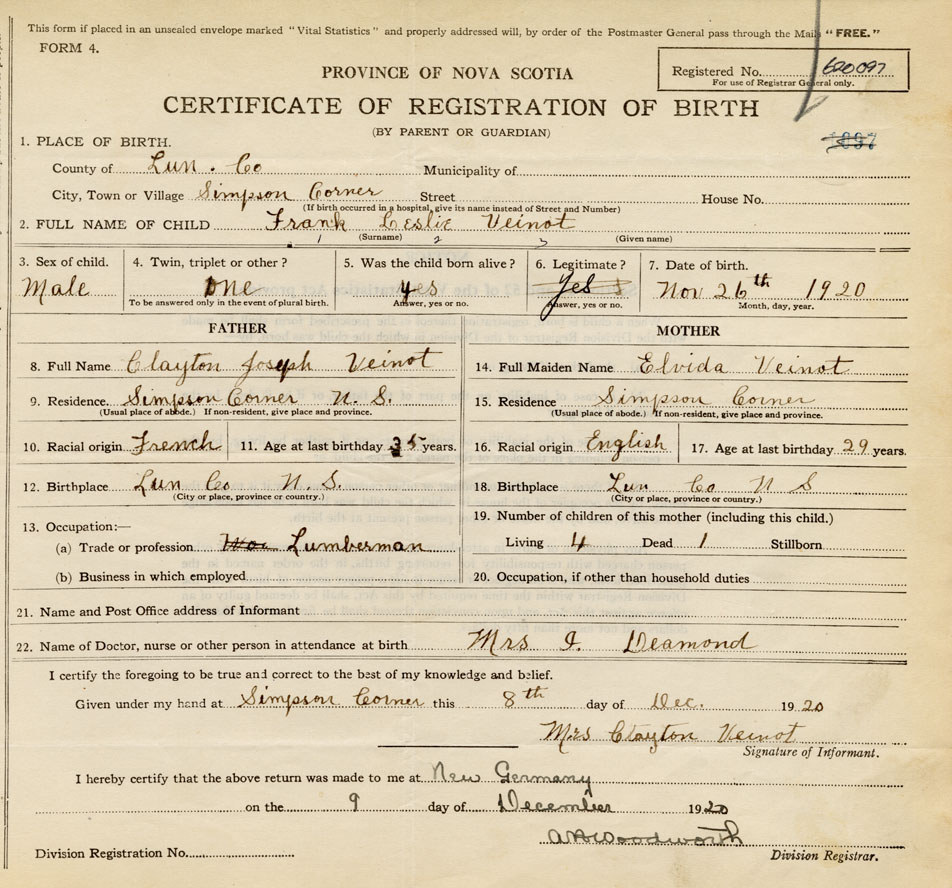 This form if placed in an unsealed envelope marked "Vital Statistics" and properly addressed will, by order of the Postmaster General pass through the Mails "FREE."
FORM 4.
PROVINCE OF NOVA SCOTIA
Registered No. 620097
For use of Registrar General only.
CERTIFICATE OF REGISTRATION OF BIRTH
(BY PARENT OR GUARDIAN)
1897
1. PLACE OF BIRTH.
County of Lun. Co Municipality of
City, Town or Village Simpson Corner Street House No.
(If birth occurred in a hospital, give its name instead of Street and Number)
2. FULL NAME OF CHILD Frank Leslie Veinot
1 (Surname) 2 3 (Given name)
3. Sex of child. 4. Twin, triplet or other? 5. Was the child born alive? 6. Legitimate? 7. Date of birth.
Male One yes Yes Nov 26th 1920
To be answered only in the event of plural birth. Answer, yes or no. Answer, yes or no. Month, day, year.
FATHER MOTHER
8. Full Name Clayton Joseph Veinot 14. Full Maiden Name Elvida Veinot
9. Residence Simpson Corner N. S. 15. Residence Simpson Corner
(Usual place of abode.) If non-resident, give place and province. (Usual place of abode.) If non-resident, give place and province.
10. Racial origin French 11. Age at last birthday 35 years. 16. Racial origin English 17. Age at last birthday 29 years.
12. Birthplace Lun Co N. S. 18. Birthplace Lun Co N S
(City or place, province or country.) (City or place, province or country.)
13. Occupation:— 19. Number of children of this mother (including this child.)
(a) Trade or profession Lumberman Living 4 Dead 1 Stillborn
(b) Business in which employed 20. Occupation, if other than household duties
21. Name and Post Office address of Informant
22. Name of Doctor, nurse or other person in attendance at birth Mrs I. Deamond
I certify the foregoing to be true and correct to the best of my knowledge and belief.
Given under my hand at Simpson Corner this 8th day of Dec. 1920
Mrs Clayton Veinot
Signature of Informant.
I hereby certify that the above return was made to me at New Germany
on the 9 day of December 1920
A Woodworth
Division Registration No. Division Registrar.